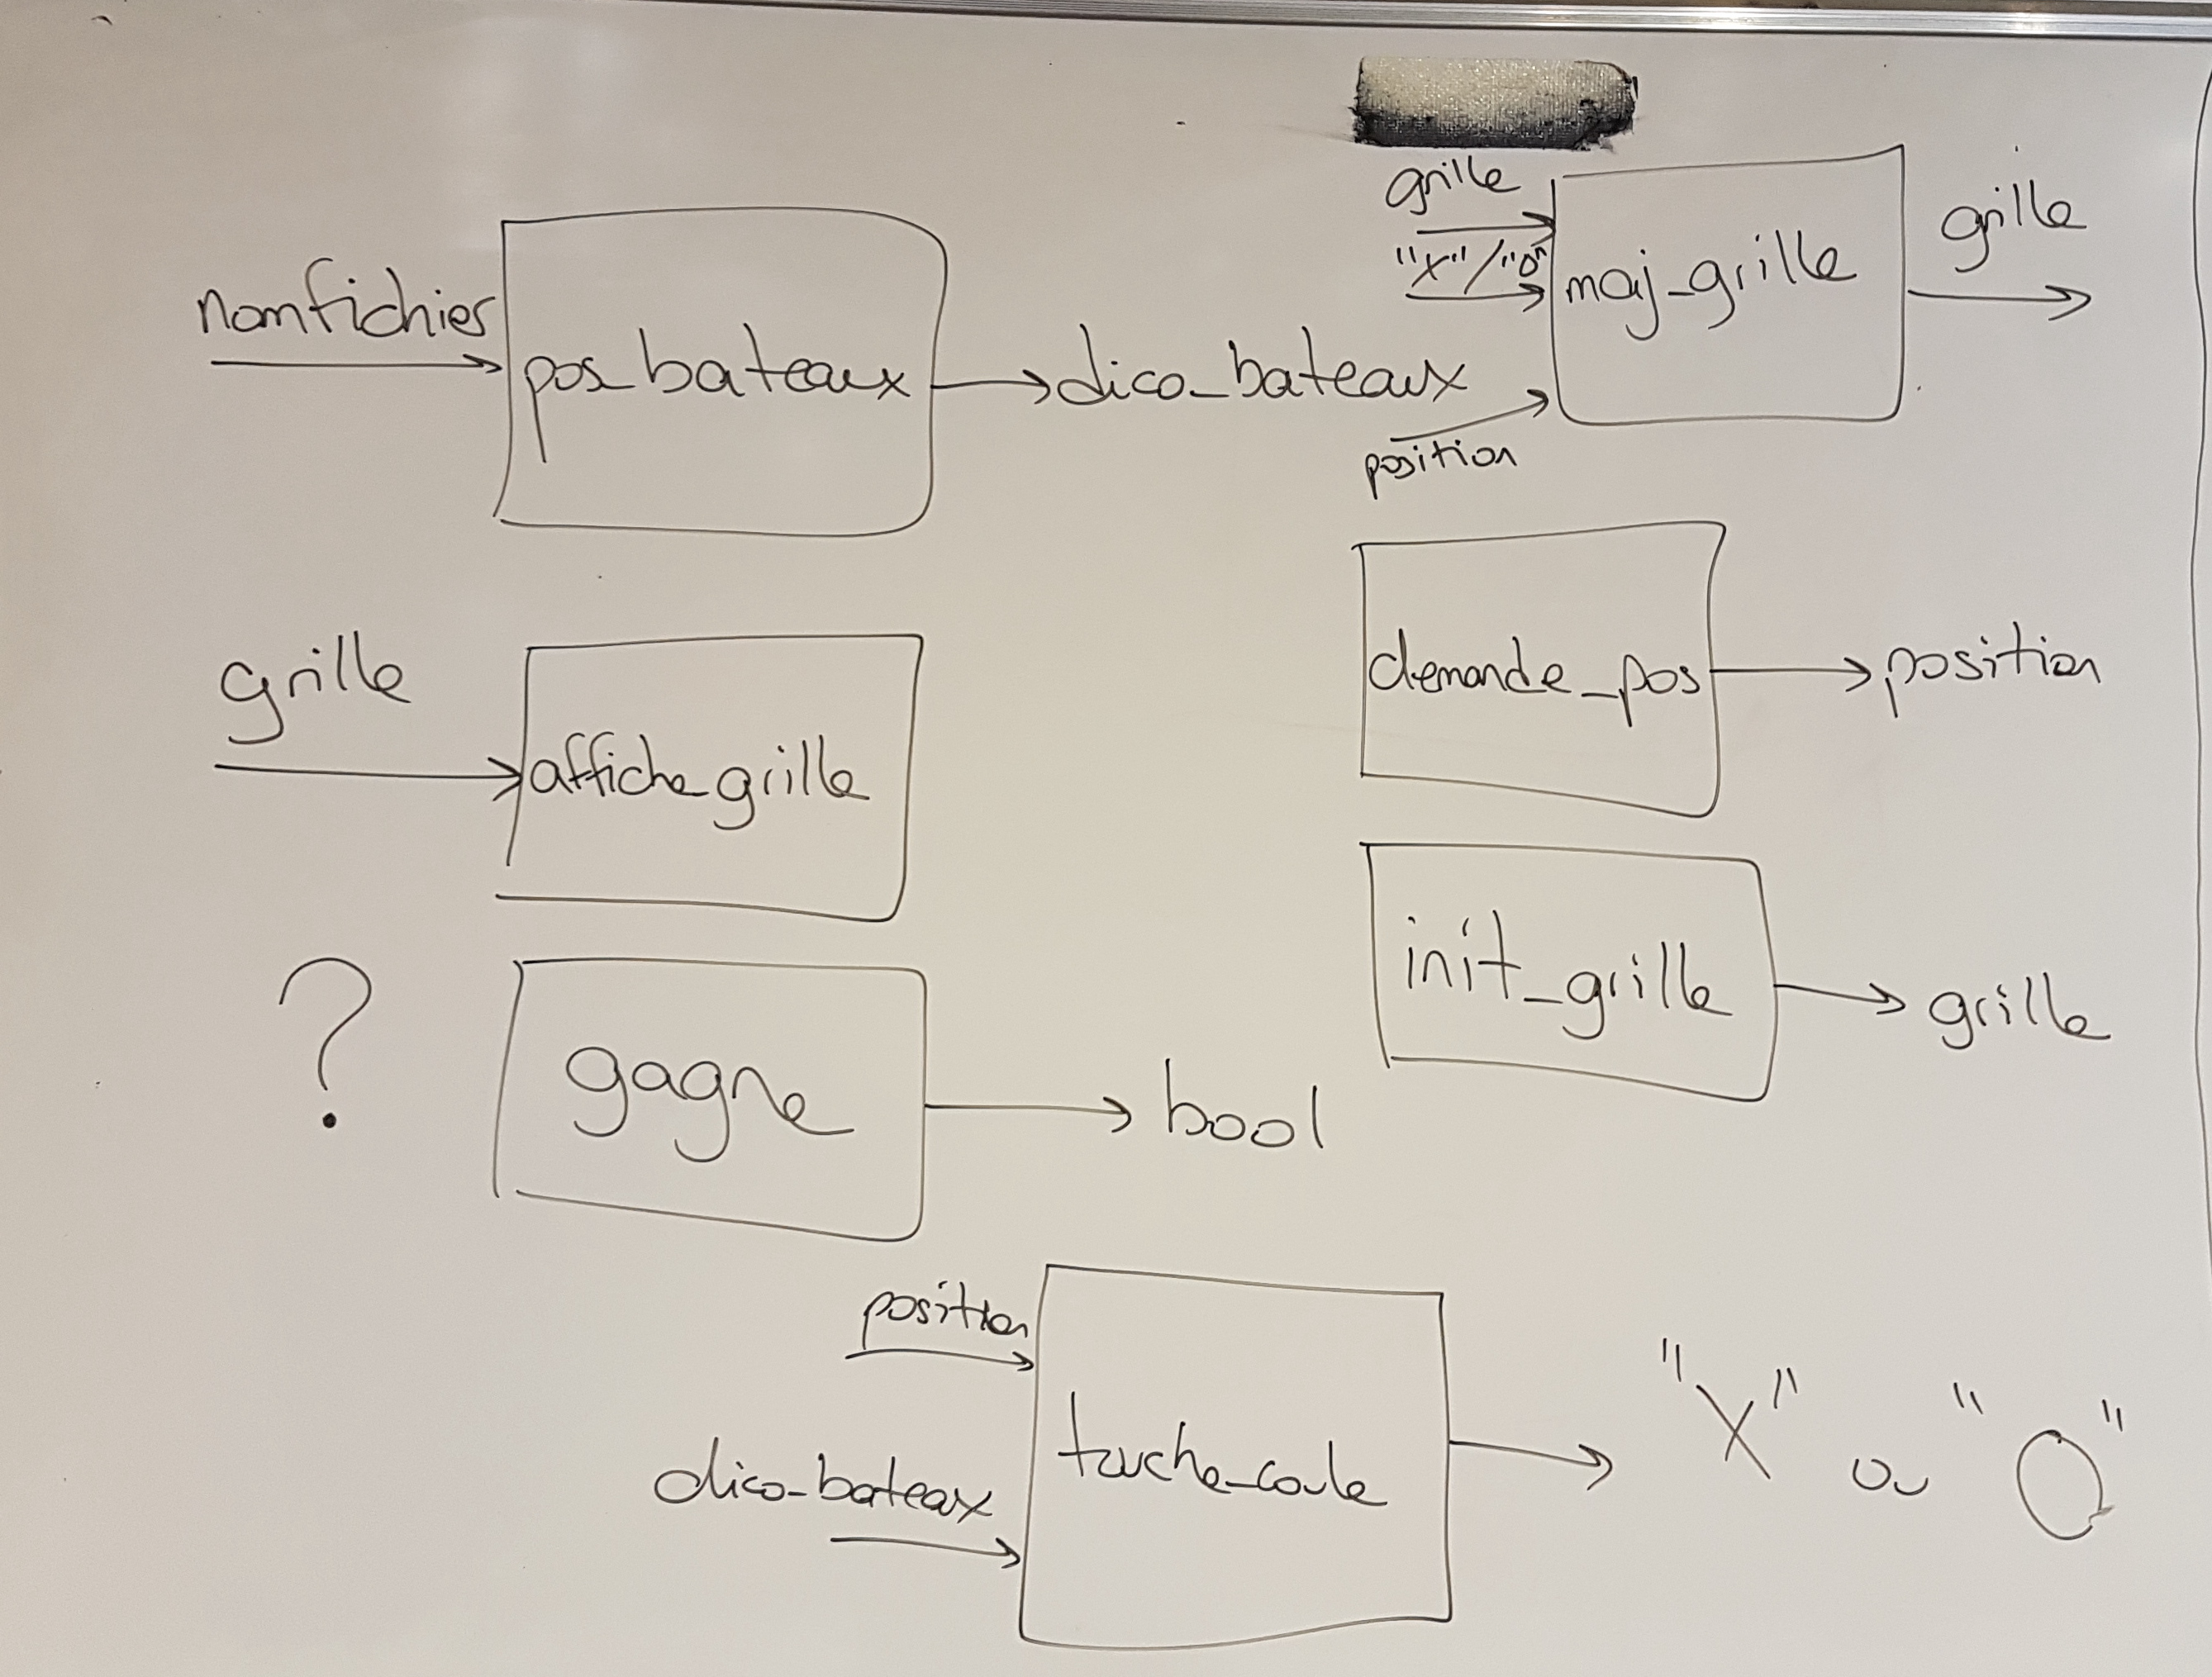 nomfichier
pos_bateaux
dico_bateaux
grille
"X"/"O"
position
maj_grille
grille
grille
affiche_grille
demande_pos
position
?
gagne
bool
init_grille
grille
position
dico_bateaux
touche_coule
"X" ou "O"